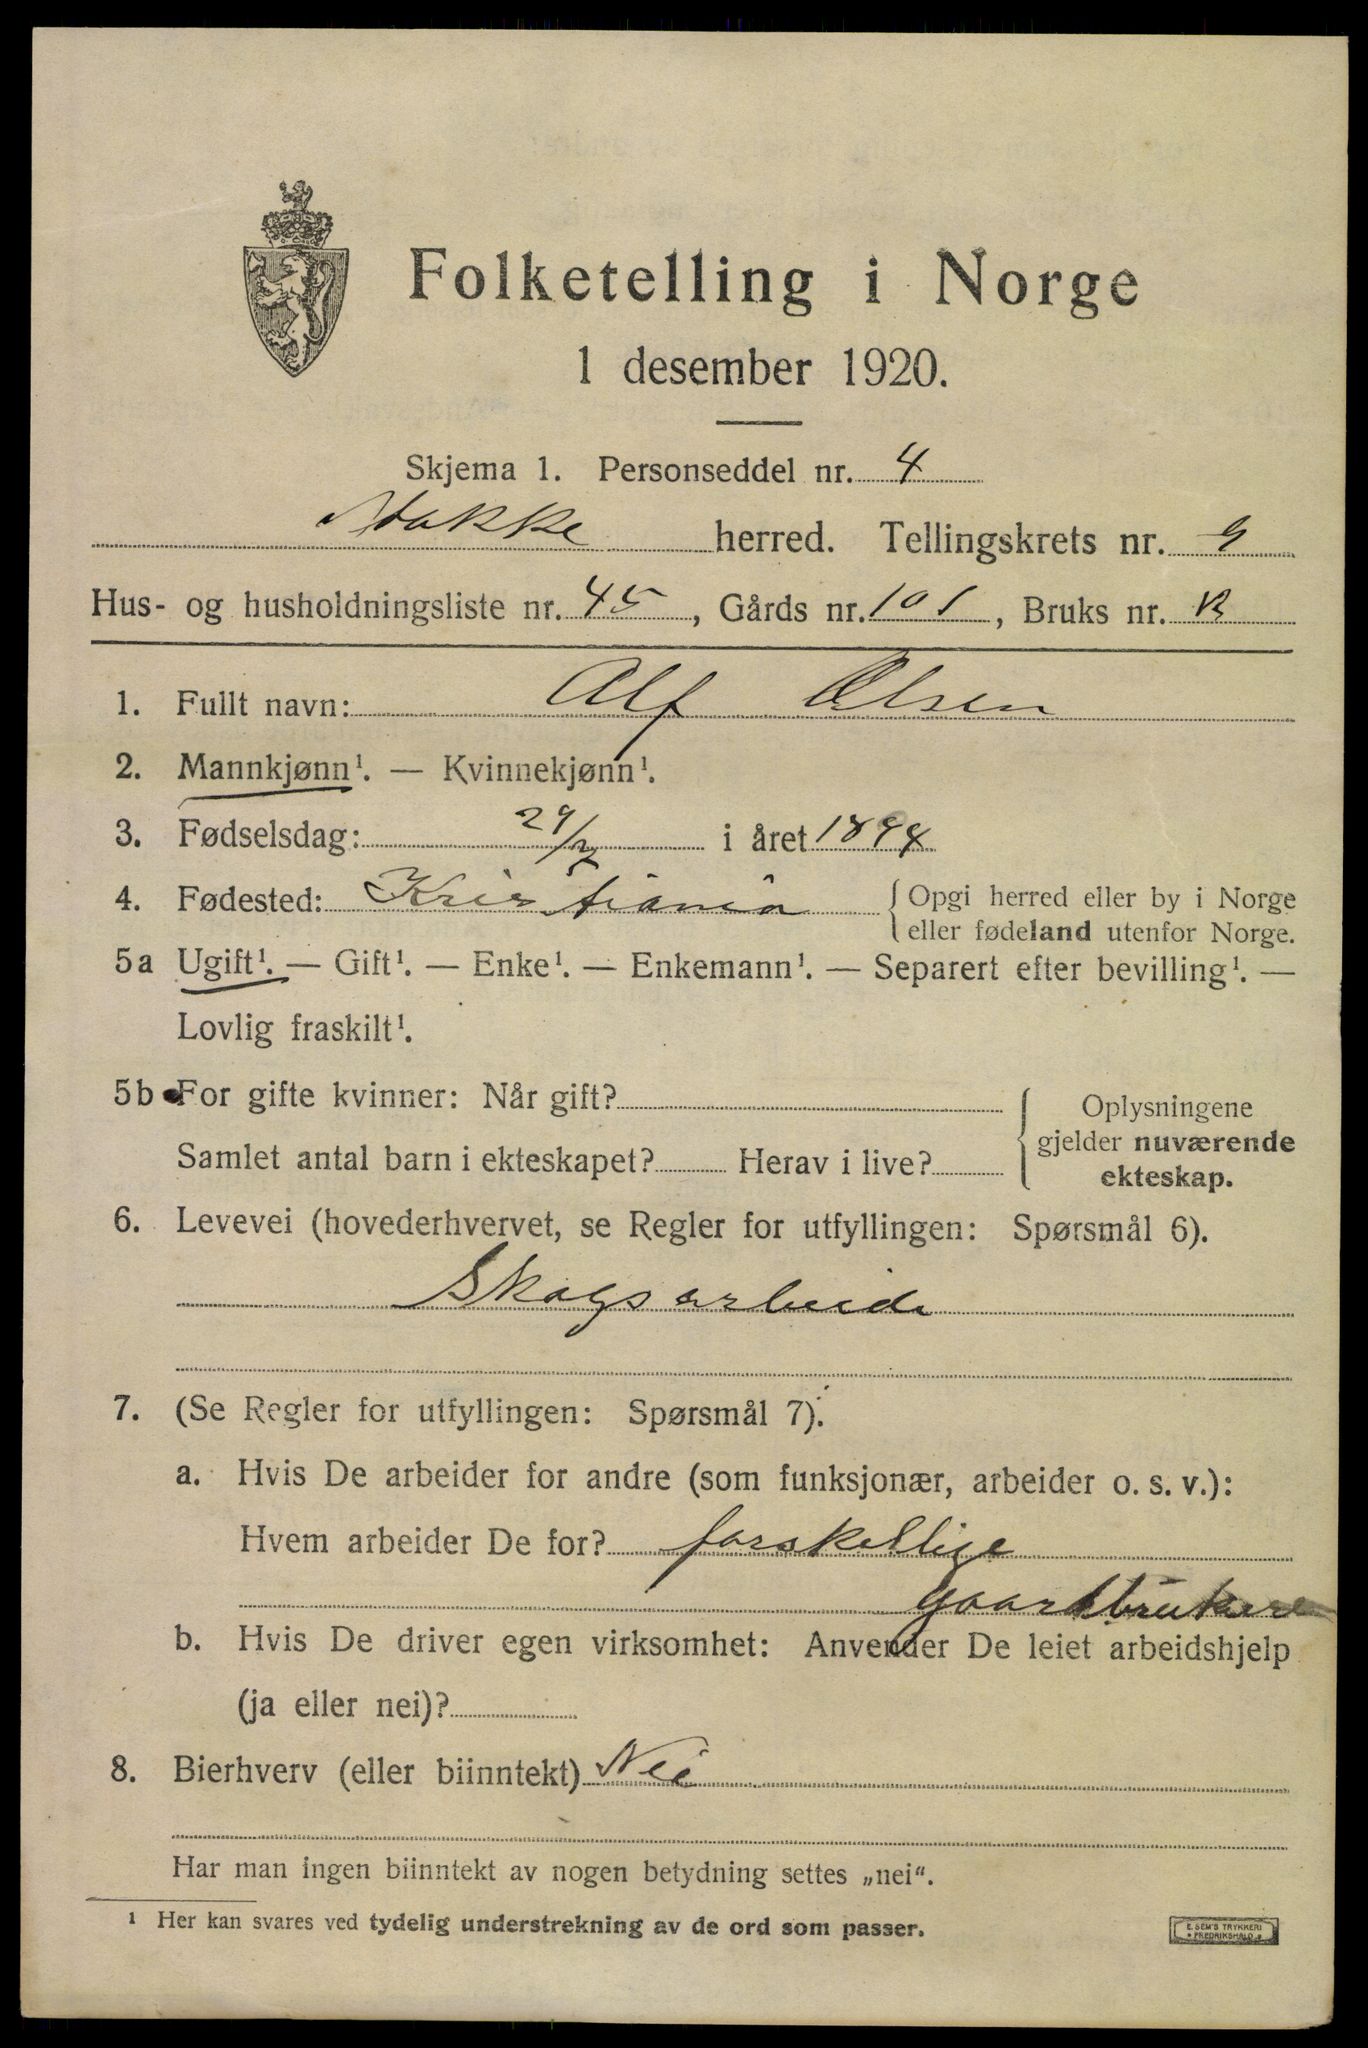 Folketelling i Norge
1 desember 1920.
Skjema 1. Personseddel nr. 4
Stokke herred. Tellingskrets nr. 9
Hus- og husholdningsliste nr. 45, Gårds nr. 101, Bruks nr.
1. Fullt navn: Alf Olsen
2. Mannkjønn¹. — Kvinnekjønn¹.
3. Fødselsdag: i året
4. Fødested: Kristiania { Opgi herred eller by i Norge
eller fødeland utenfor Norge.
5a Ugift¹. — Gift¹. — Enke¹. — Enkemann¹. — Separert efter bevilling¹. —
Lovlig fraskilt¹.
5b For gifte kvinner: Når gift?
Samlet antal barn i ekteskapet? Herav i live?
Oplysningene
gjelder nuværende
ekteskap.
6. Levevei (hovederhvervet, se Regler for utfyllingen: Spørsmål 6).
Skogsarbeide
7. (Se Regler for utfyllingen: Spørsmål 7).
a. Hvis De arbeider for andre (som funksjonær, arbeider o. s. v.):
Hvem arbeider De for? forskellige
gaardbrukere
b. Hvis De driver egen virksomhet: Anvender De leiet arbeidshjelp
(ja eller nei)?
8. Bierhverv (eller biinntekt) Nei
Har man ingen biinntekt av nogen betydning settes „nei“.
¹ Her kan svares ved tydelig understrekning av de ord som passer.
E. SEM'S TRYKKERI
* FREDRIKSHALD *